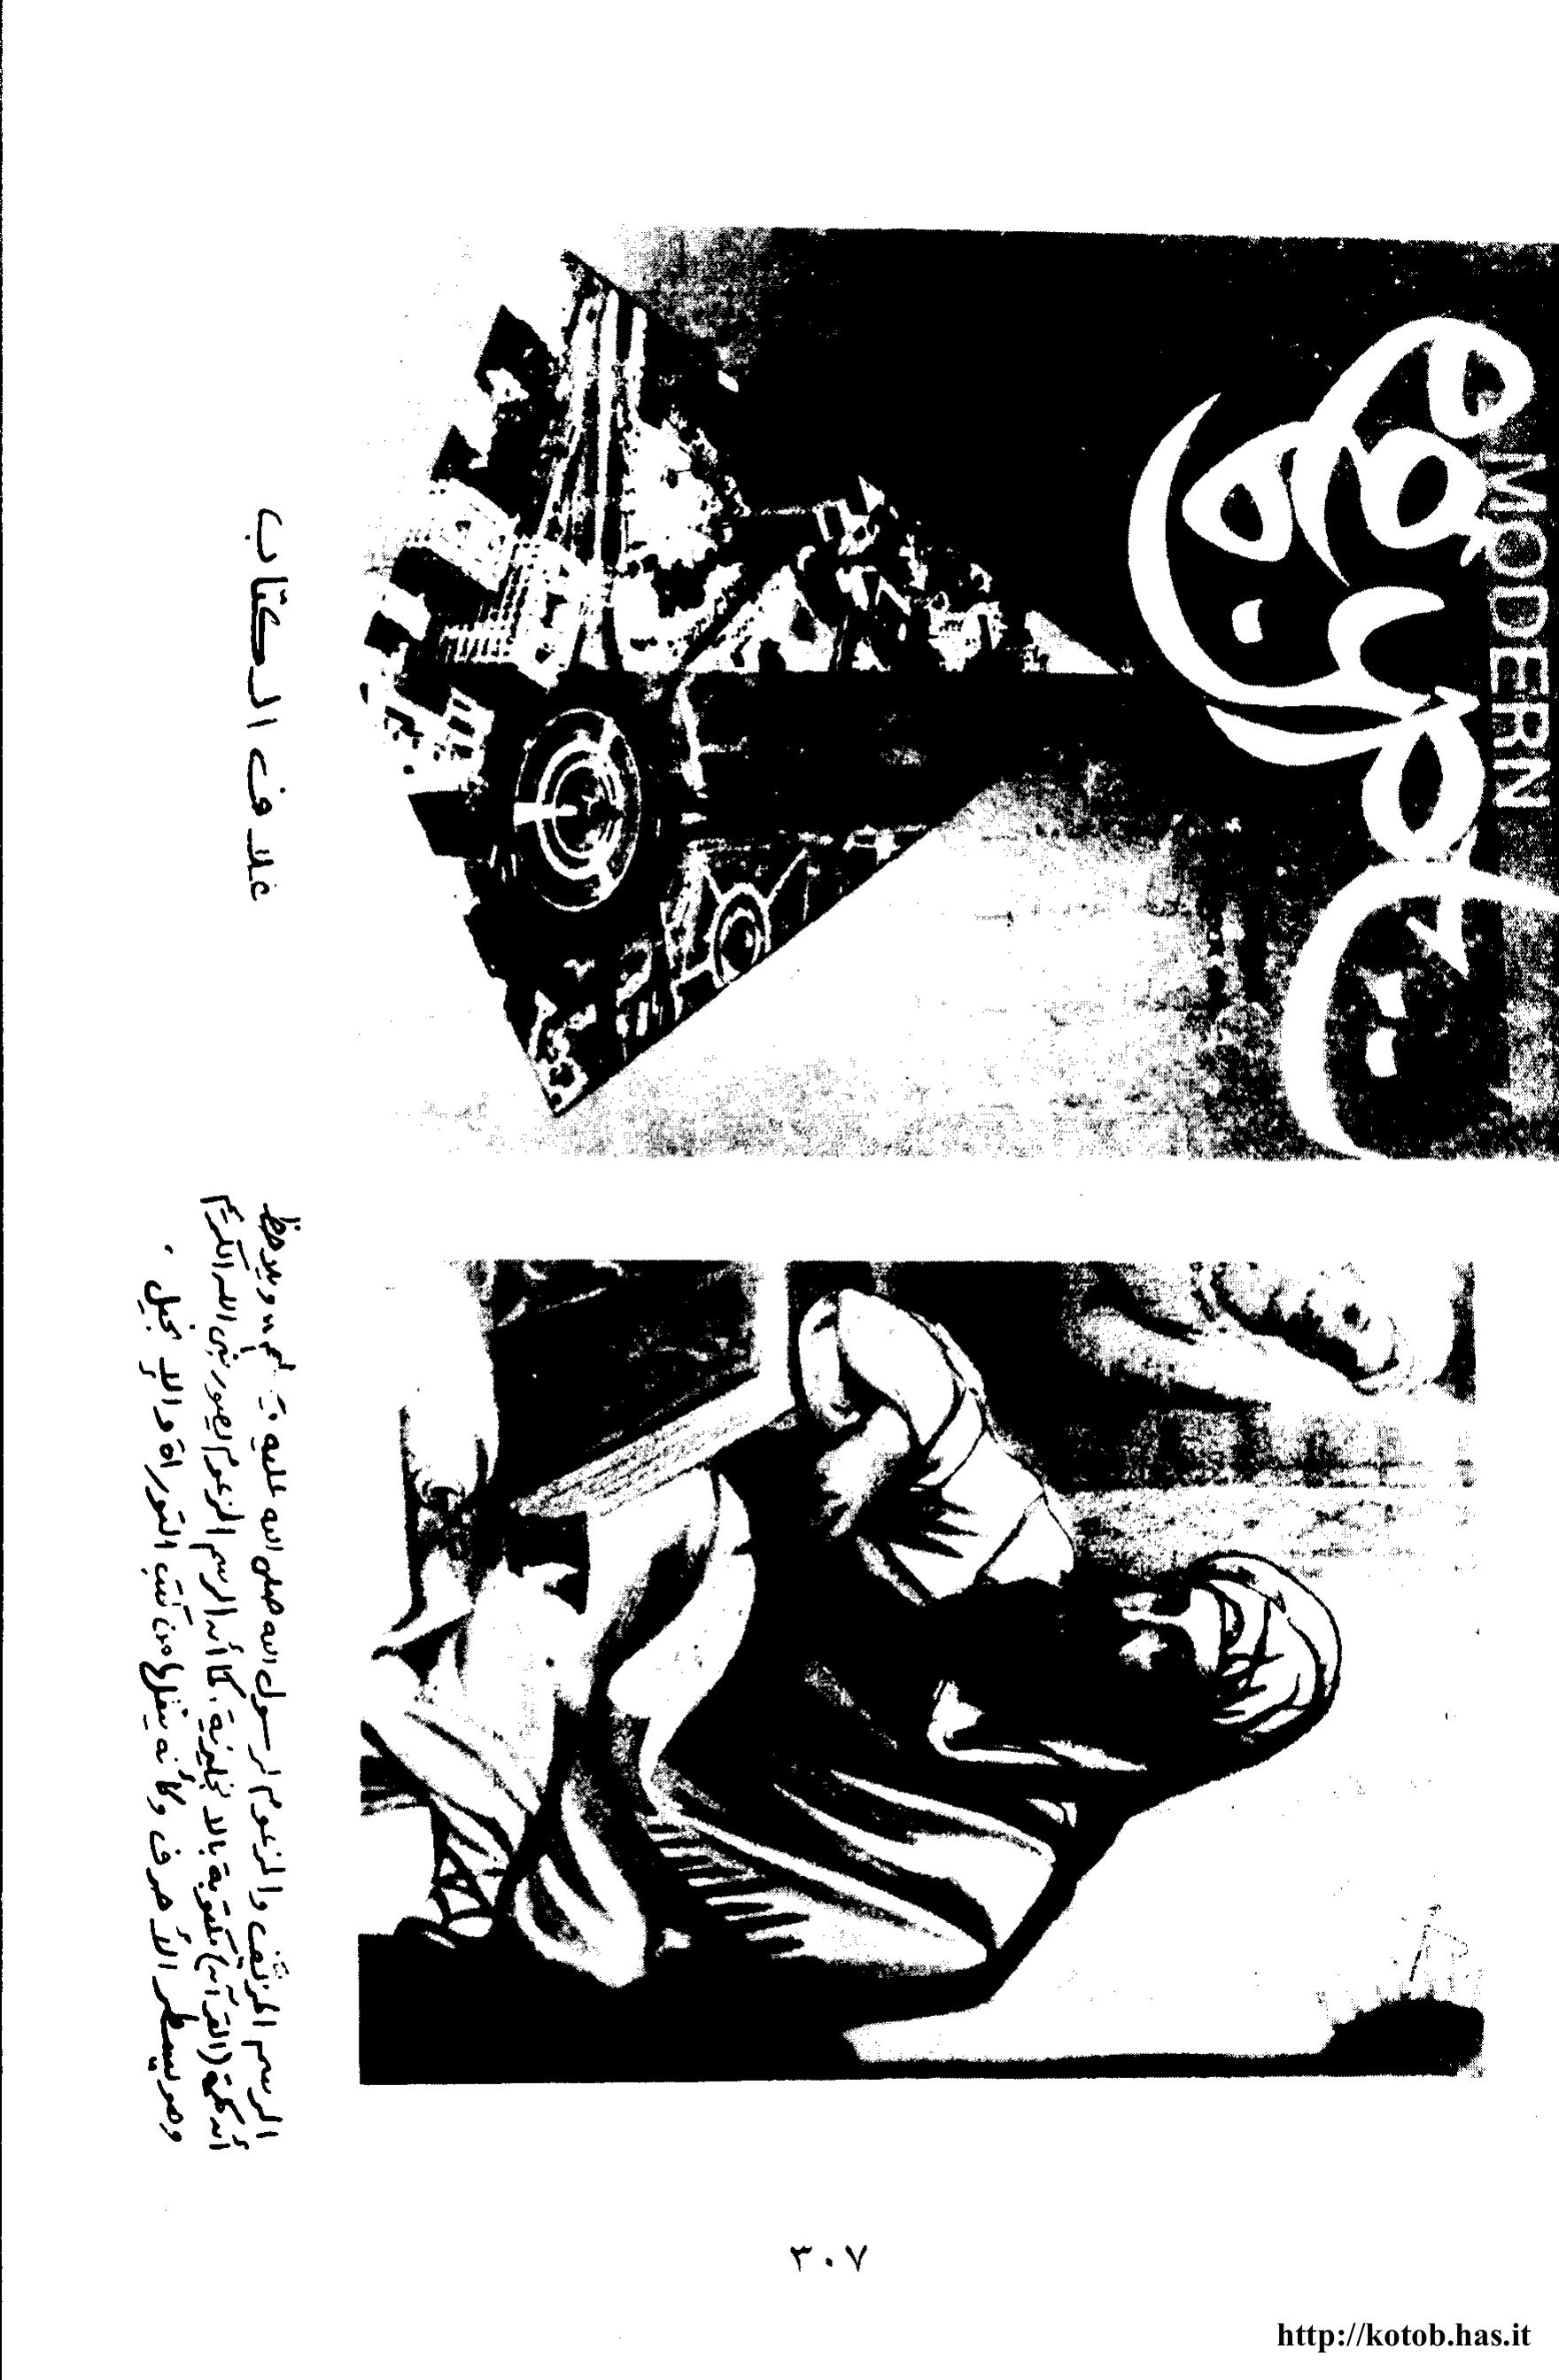 MODERN
غلاف الكتاب
الرسم المزيف والمزعوم لرسول الله صلى الله عليه وسلم ويلاحظ
أن كلمة (القرآن) مكتوبة بالانجليزية، كما أن الرسم المزعوم يصور نبى الله الكريم
وهو يسطر الأحرف وكأنه ينقلها من كتب التوراة والإنجيل.
٣٠٧
http://kotob.has.it